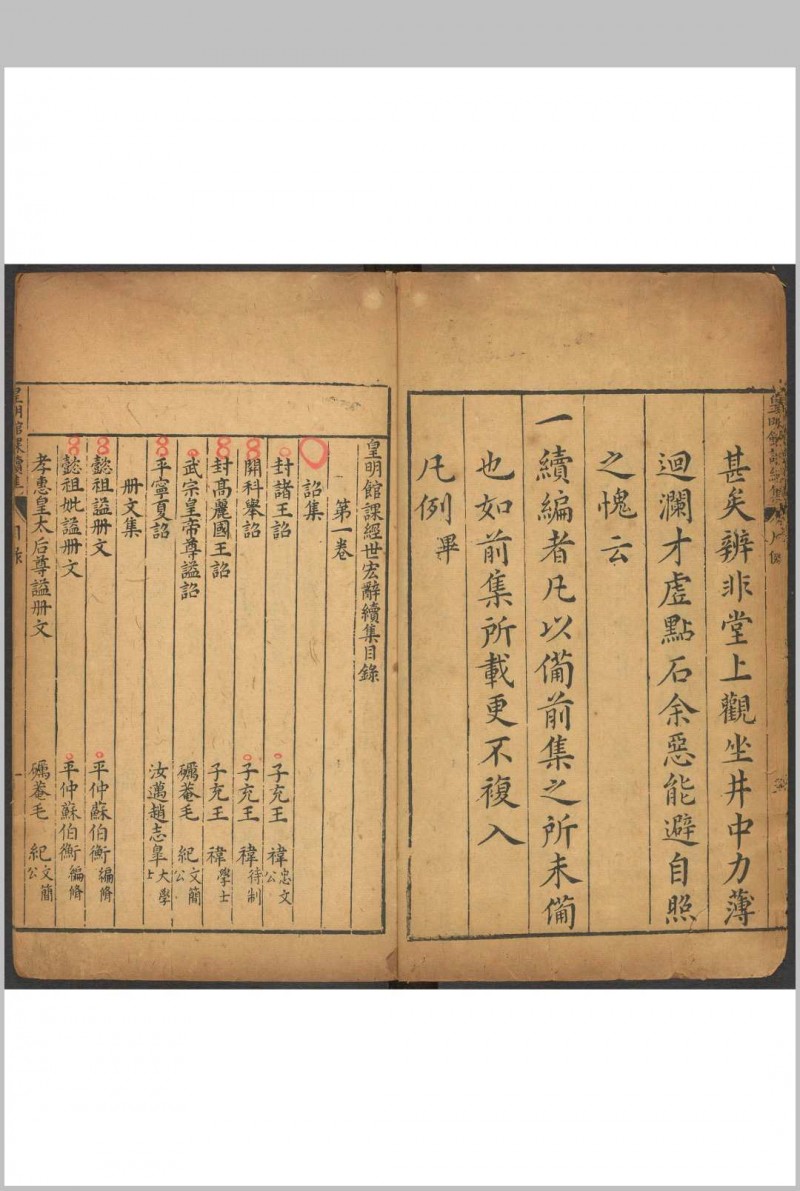 甚矣辨非堂上觀坐井中力薄
迴瀾才虛點石余惡能避自照
之愧云
一續編者凡以備前集之所未備
也如前集所載更不複入
凡例畢
皇明館課經世宏辭續集目錄
第一卷
詔集
封諸王詔 子充王禕忠文公
開科舉詔 子充王禕待制
封高麗國王詔 子充王禕學士
武宗皇帝尊諡詔 礪菴毛紀文簡公
平寧夏詔 汝邁趙志皐大學士
册文集
懿祖諡册文 平仲蘇伯衡編脩
懿祖妣諡册文 平仲蘇伯衡編脩
孝惠皇太后尊諡册文 礪菴毛紀文簡公
皇明館課續集 目錄 一